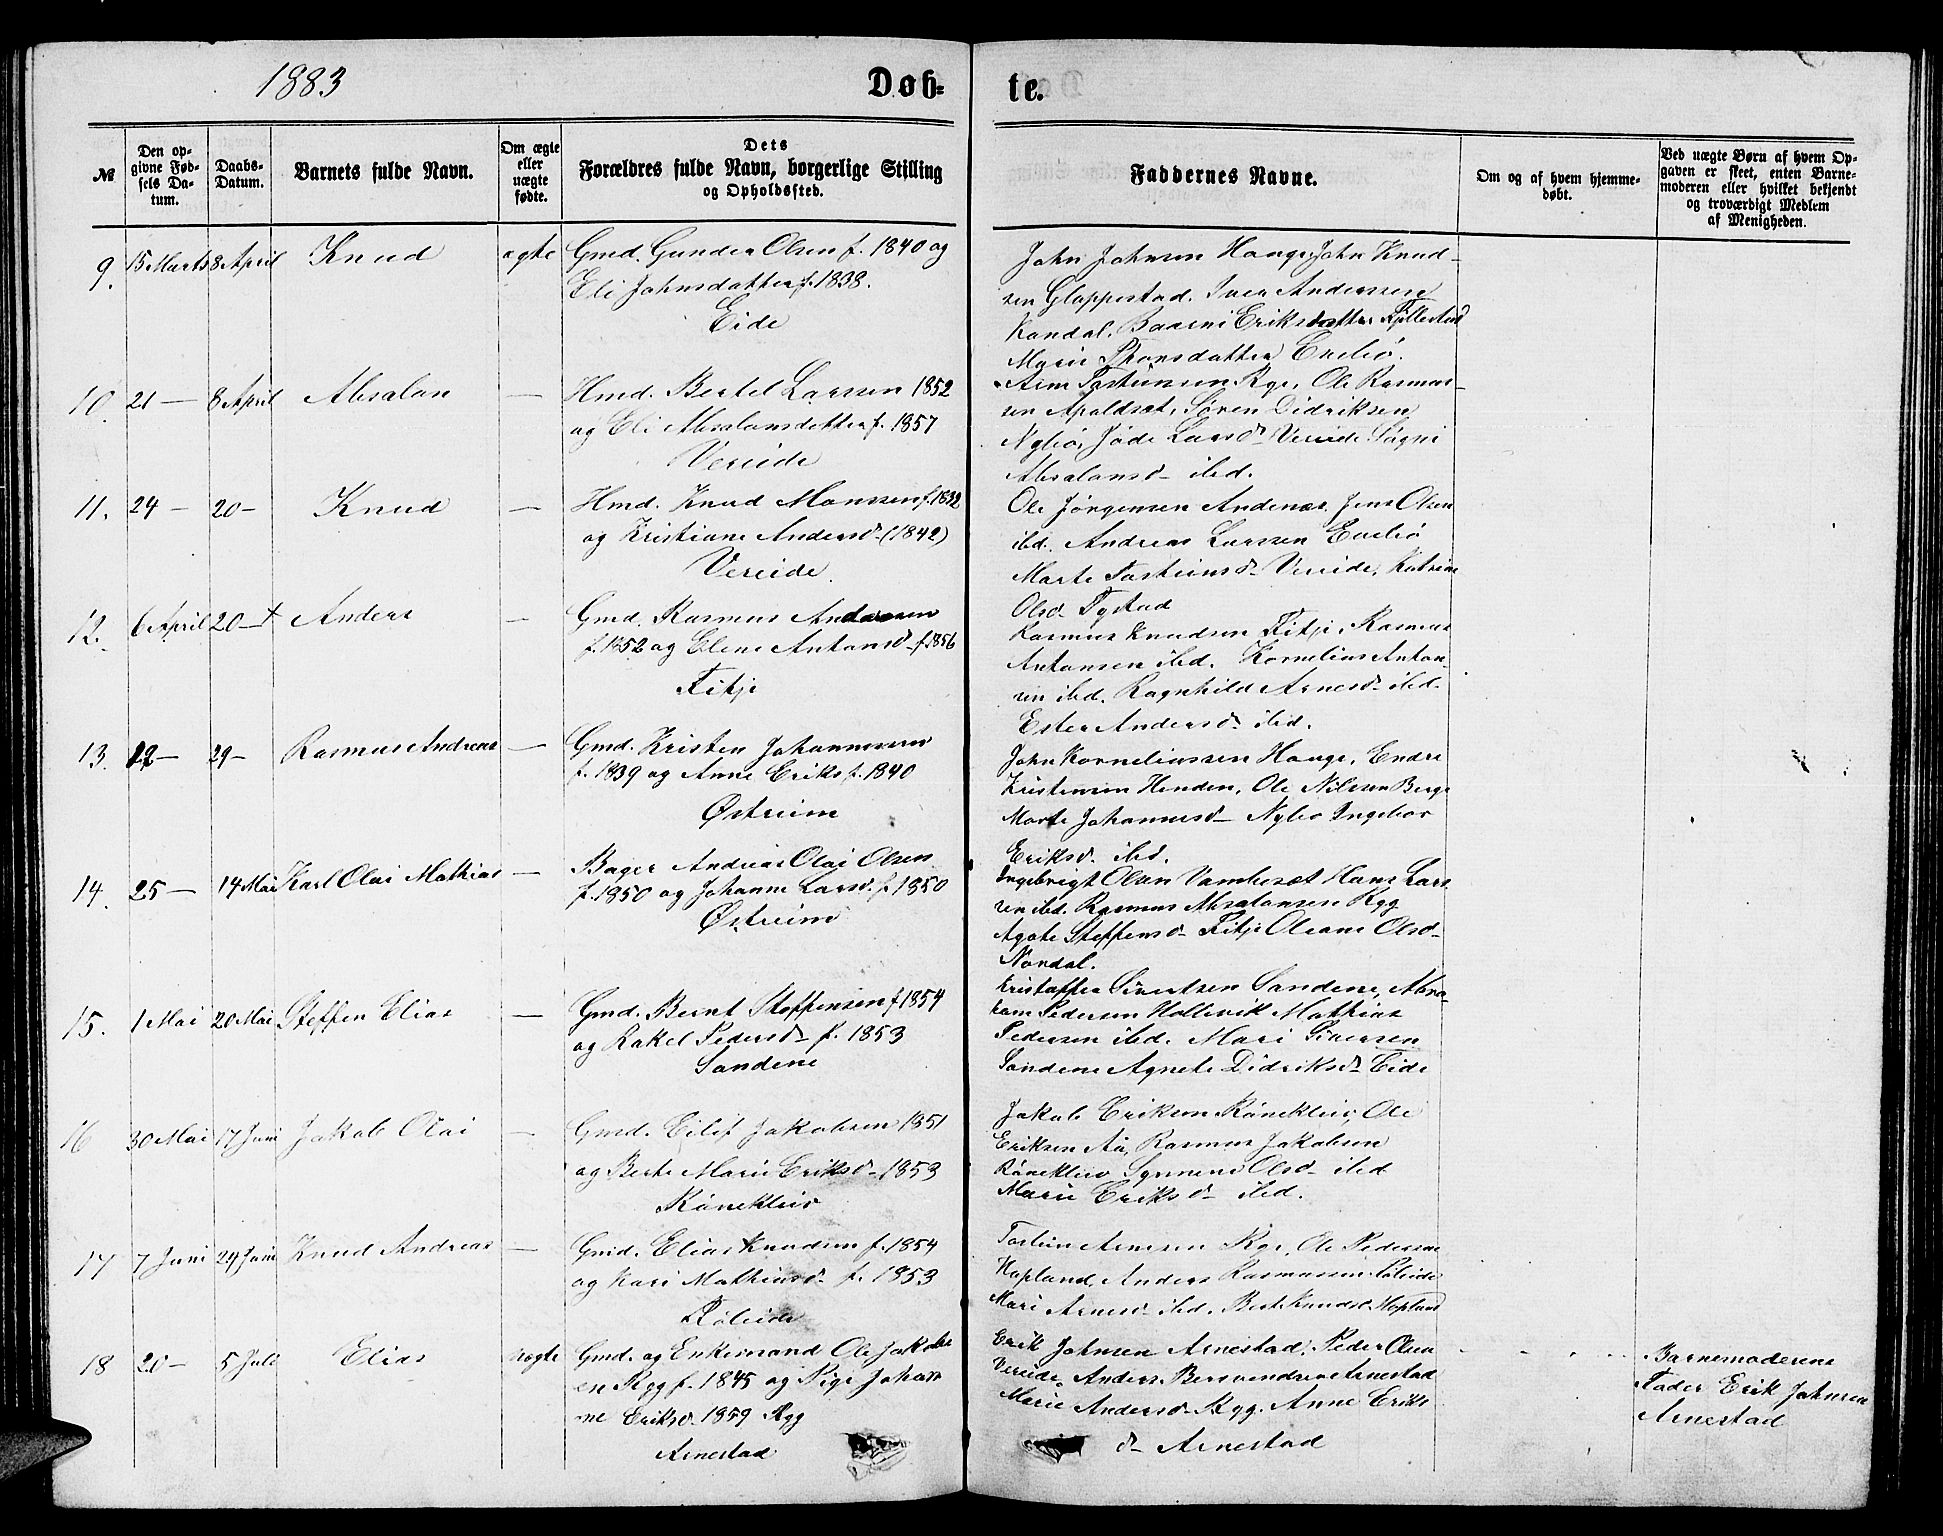 1883
Døb-
te.
№
Den op-
givne Fød-
sels Da-
tum.
Daabs-
Datum.
Barnets fulde Navn.
Om ægte
eller
uægte
fødte.
Dets
Forældres fulde Navn, borgerlige Stilling
og Opholdssted.
Faddernes Navne.
Om og af hvem hjemme-
døbt.
Ved uægte Børn af hvem Op-
gaven er skeet, enten Barne-
moderen eller hvilket bekjendt
og troværdigt Medlem
af Menigheden.
9. 15 Marts 8 April Knud ægte Gmd. Gunder Olsen f. 1840 og
Eli Johnsdatter f. 1838.
Eide
John Johnsen Hauge, John Knud-
sen Gloppestad. Iver Anderssen
Kandal, Eriksdatter
Marie Thomsdatter Evebø.
10. 21 — 8 April Absalon — Hmd. Bertel Larssen 1852
og Eli Absalonsdatter f. 1857
Vereide
Arne Tosteinsen Ryg, Ole Rasmus-
sen Apaldset, Søren Didriksen
Nybø, Larsd. Vereide
Absalonsd. ibd.
11. 24 — 20 — Knud — Hmd. Knud Monssen f. 1832
og Kristiane Andersd. (1842)
Vereide.
Ole Jørgensen Andenæs, Jens Olsen
ibd. Andreas Larssen Evebø
Marte Tosteinsd. Vereide, Katrine
Olsd. Tystad
12. 6 April 20 — + Anders — Gmd. Rasmus Andersen
f. 1852 og Elene Antonsd. f. 1856
Fitje
Rasmus Knudsen Fitje, Rasmus
Antonsen ibd. Kornelius Anton-
sen ibd. Ragnhild Arnesd. ibd.
Ester Andersd. ibd.
13. 12 — 29 — Rasmus Andreas — Gmd. Kristen Johannessen
f. 1839 og Anne Eriks f. 1840
Østreim
John Korneliussen Hauge, Endre
Kristensen Henden, Ole Nilssen Berge
Marte Johannesd. Nybø Ingebor
Eriksd. ibd.
14. 25 — 14 Mai Karl Olai Mathias — Bager Andreas Olai Olsen
f. 1850 og Johanne Larsd. f. 1850
Østreim
Ingebrigt Olsen Vambeset Hans Lars
sen ibd. Rasmus Absalonsen Ryg
Agate Steffensd. Fitje Oleane Olsd.
Nordal.
15. 1 Mai 20 Mai Steffen Elias — Gmd. Bernt Steffensen f 1854
og Rakel Pedersd. f. 1853
Sandene
Kristoffer Sivertsen Sandene, Abra-
ham Pedersen Hollevik Mathias
Pedersen ibd. Mari
Sandene Agnete Didriksd. Eide
16 30 Mai 17 Juni Jakob Olai — Gmd. Eilif Jakobsen 1851
og Berte Marie Eriksd. 1853
Rønekleiv
Jakob Eriksen Rønekleiv, Ole
Eriksen Aa, Rasmus Jakobsen
Rønekleiv Synneve Olsd. ibd
Marie Eriksd. ibd.
17 7 Juni 24 Juni Knud Andreas — Gmd. Elias Knudsen f. 1854
og Kari Mathiasd. f. 1853
Røleide
Tostein Arnesen Ryg, Ole Pedersen
Hopland, Anders Rasmussen Røleide
Mari Arnesd. ibd. Berte Knudsd. Hopland
18 20 — 5 Juli Elias uægte Gmd. og Enkemand Ole Jakobs
en Ryg f. 1845 og Pige Johan
ne Eriksd. 1859 Ryg
Arnestad
Erik Johnsen Arnestad, Peder Olsen
Vereide, Anders Bersvendsen Arnestad
Marie Andersd. Ryg. Anne Eriks
d. Arnestad
Barnemoderens
Fader Erik Johnsen
Arnestad